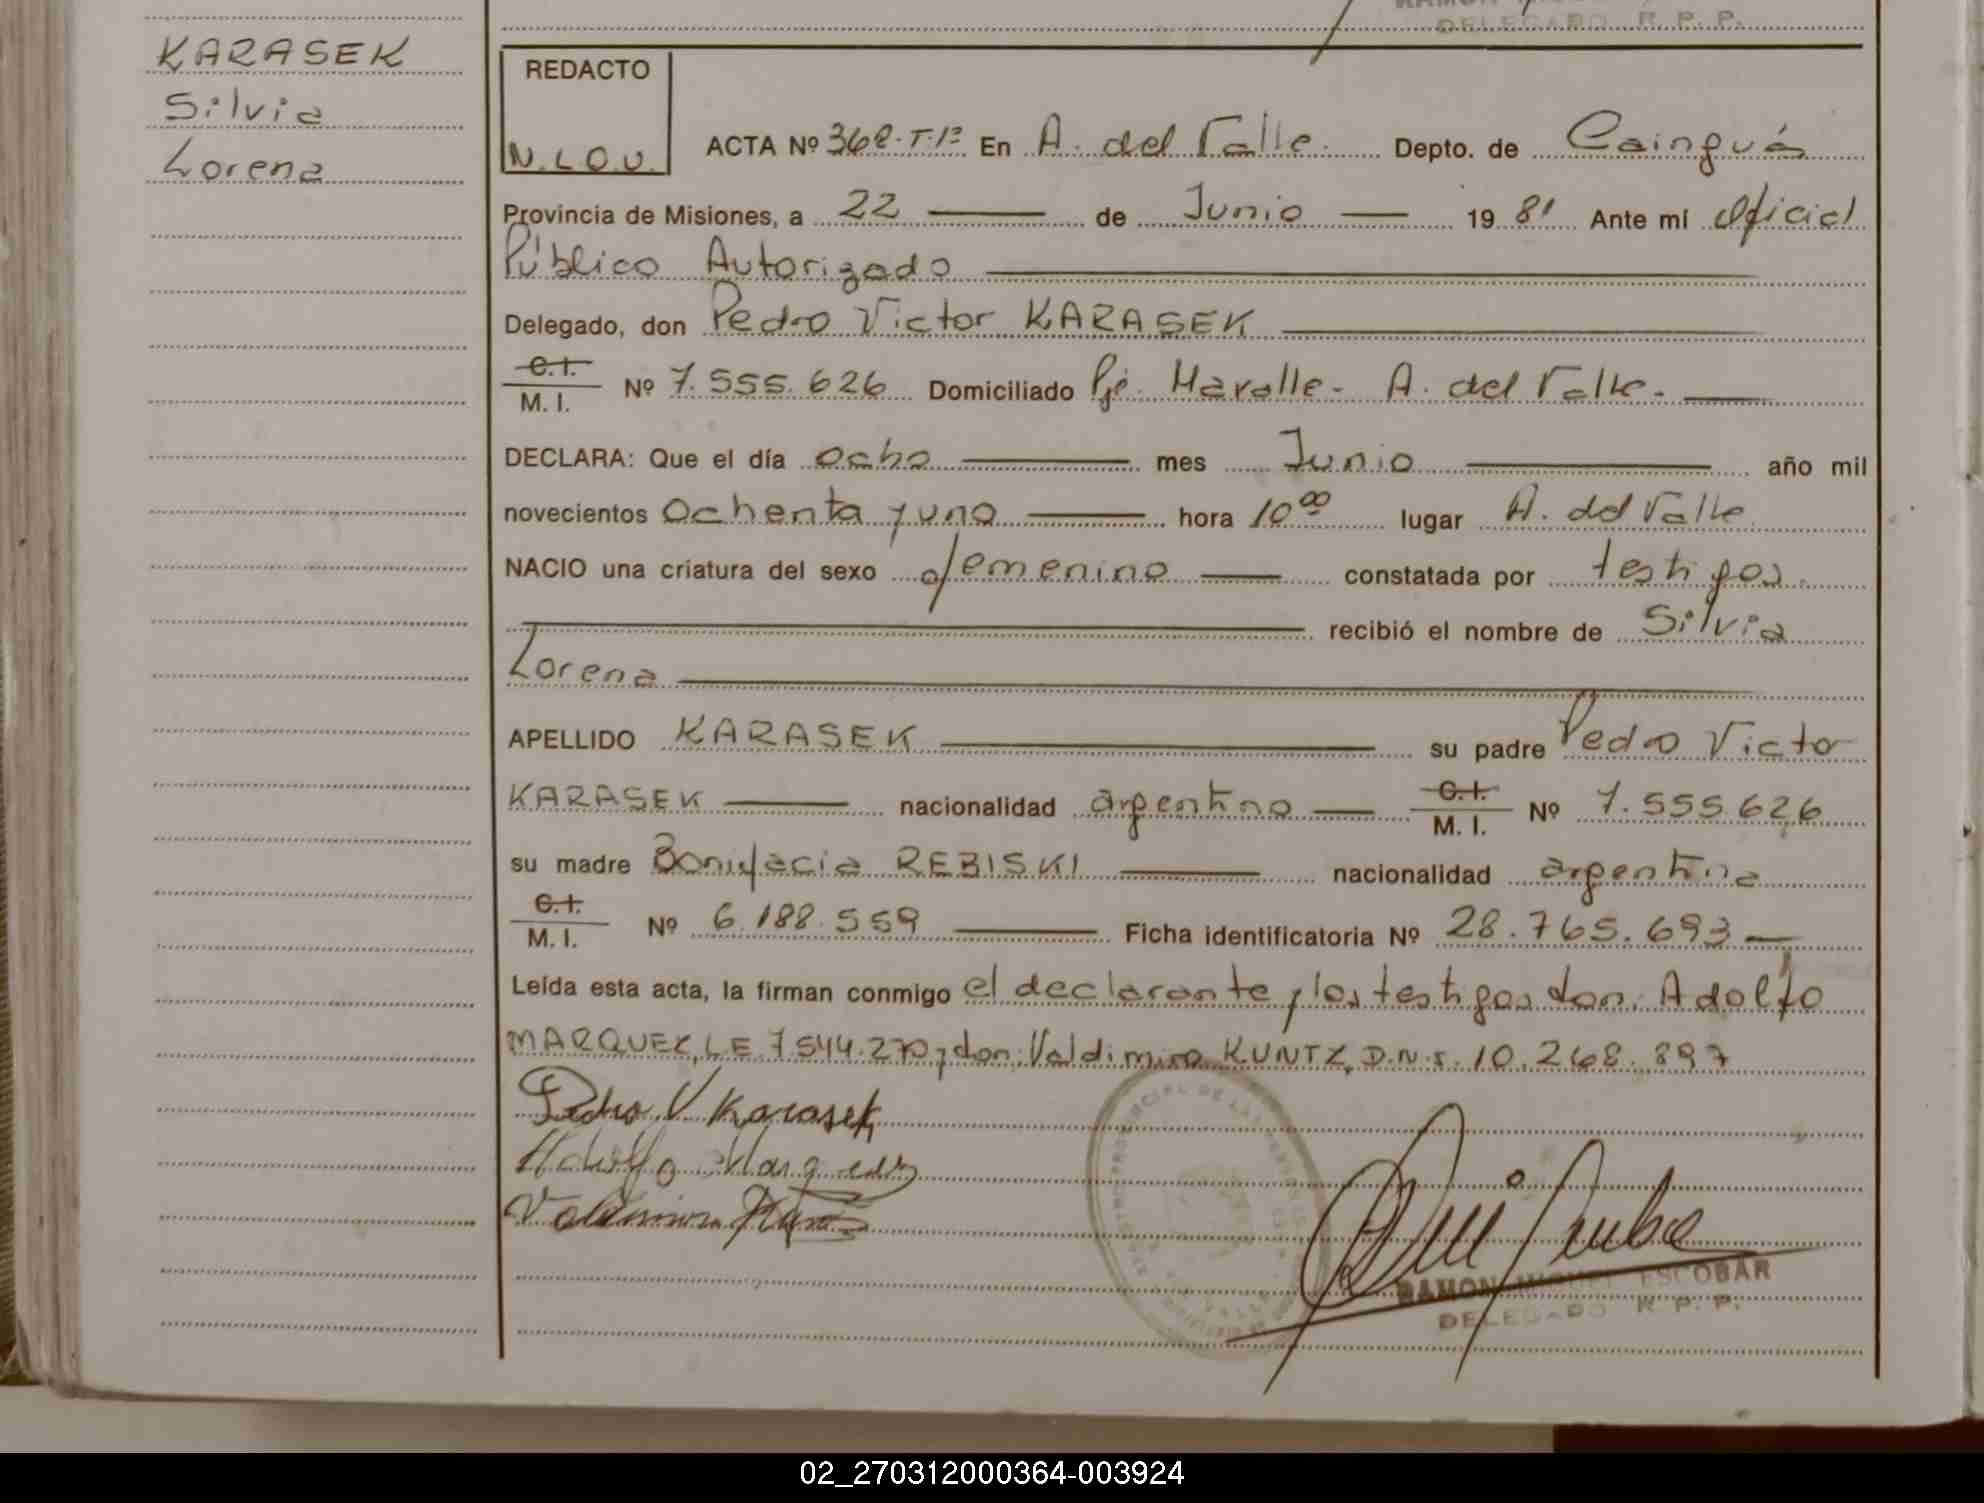 KARASEK
Silvia
Lorena
DELEGADO R. P. P.
REDACTO
N.L.O.U.
ACTA Nº 368-T-1º En A. del Valle. Depto. de Cainguás
Provincia de Misiones, a 22 de Junio 19 81 Ante mí Oficial
Público Autorizado
Delegado, don Pedro Victor KARASEK
C.I.
M. I. Nº 7.555.626 Domiciliado Pje. Maralle - A. del Valle.
DECLARA: Que el día ocho mes Junio año mil
novecientos ochenta y uno hora 10 00 lugar A. del Valle
NACIO una criatura del sexo femenino constatada por testigos.
recibió el nombre de Silvia
Lorena
APELLIDO KARASEK su padre Pedro Victor
KARASEK nacionalidad argentino C.I. M. I. Nº 7.555.626
su madre Bonifacia REBISKI nacionalidad argentina
C.I.
M. I. Nº 6.188.559 Ficha identificatoria Nº 28.765.693
Leída esta acta, la firman conmigo el declarante y los testigos don: Adolfo
MARQUEZ, L.E. 7.544.270 y don: Valdimiro KUNTZ, D.N.I. 10.268.897
Pedro V Karasek
Adolfo Marquez
RAMON MIGUEL ESCOBAR
DELEGADO R. P. P.
02_270312000364-003924